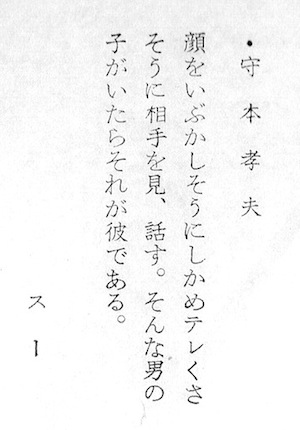 ・守本孝夫
顔をいぶかしそうにしかめテレくさ
そうに相手を見、話す。そんな男の
子がいたらそれが彼である。
スー